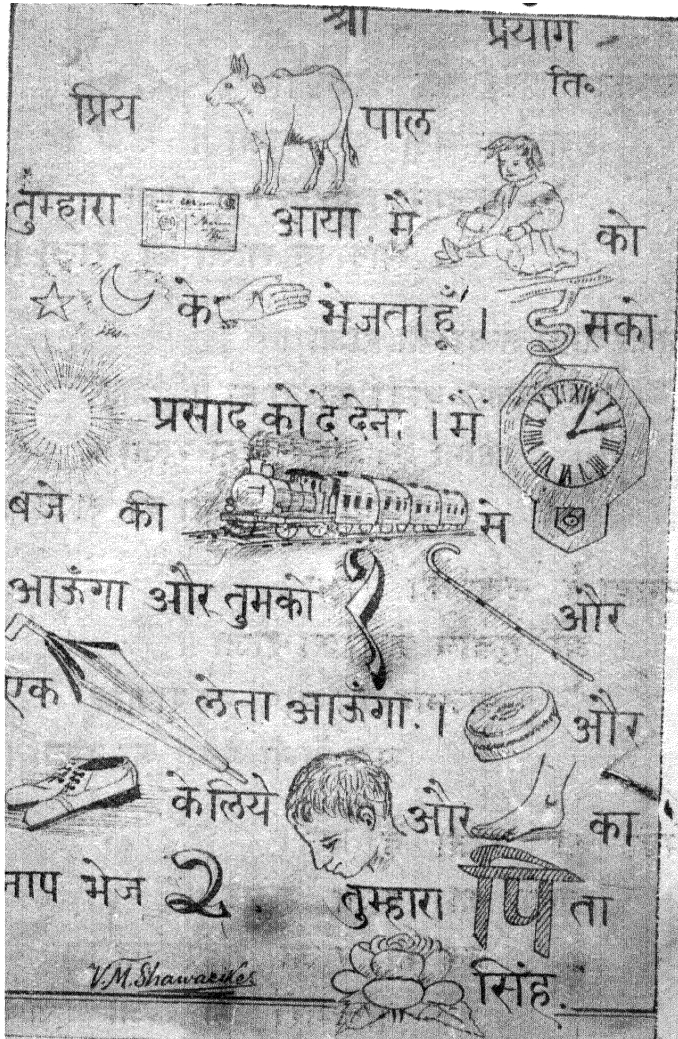 श्री प्रयाग
ति॰
प्रिय पाल
तुम्हारा आया. मैं को
के भेजता हूँ । इसको
प्रसाद को दे देना । मैं
बजे की से
आऊँगा और तुमको १ और
एक लेता आऊँगा. । और
के लिये और का
नाप भेज 2 तुम्हारा पिता
V.M. Shawarikes सिंह.